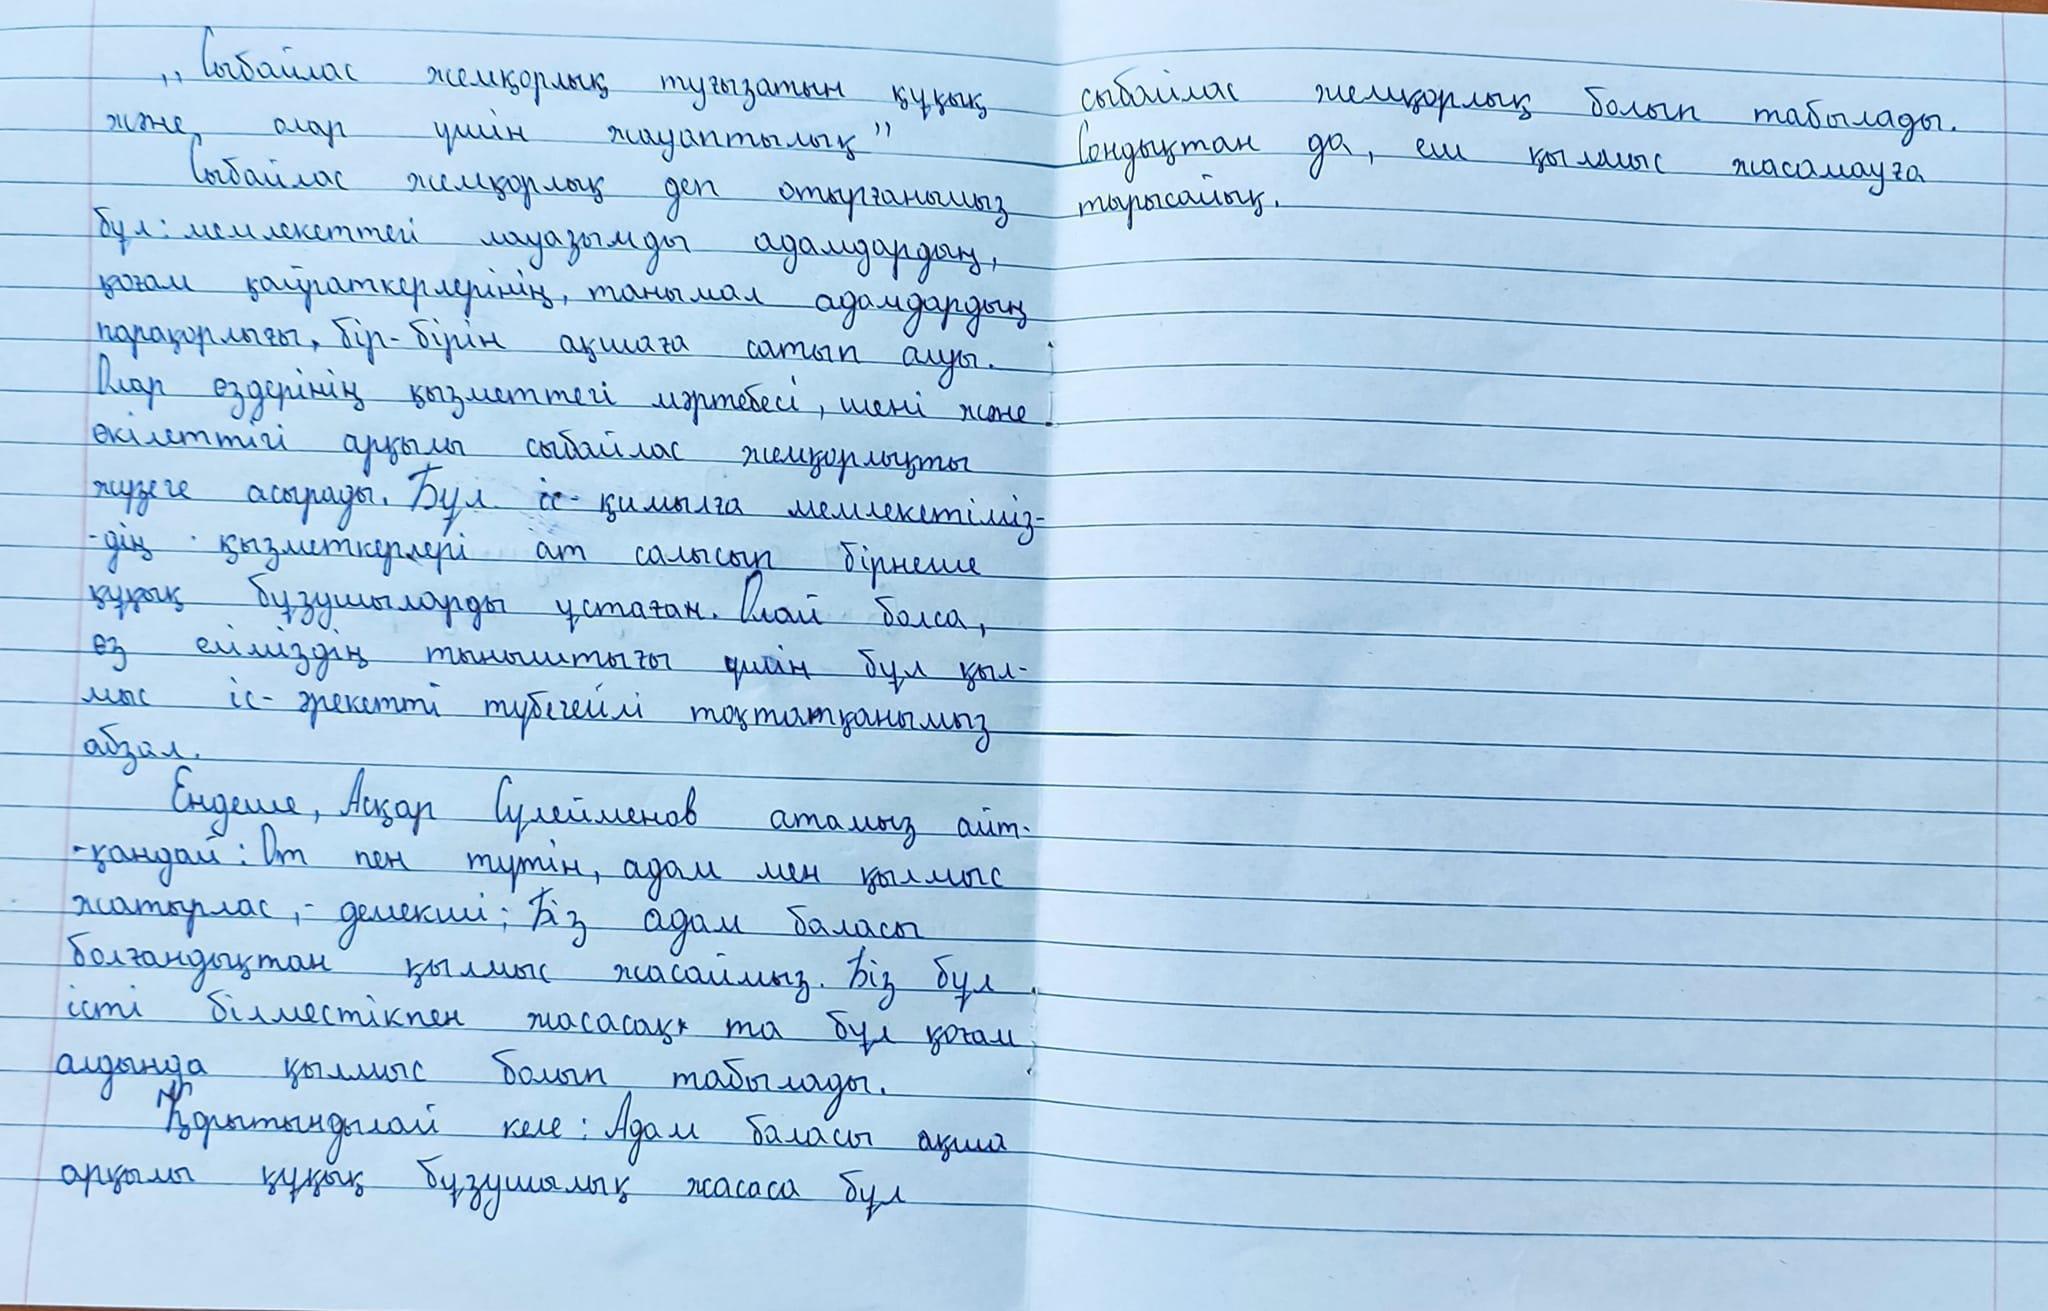 „Сыбайлас жемқорлық туғызатын құқық
және олар үшін жауаптылық”
Сыбайлас жемқорлық деп отырғанымыз
бұл: мемлекеттегі лауазымды адамдардың,
қоғам қайраткерлерінің, танымал адамдардың
парақорлығы, бір-бірін ақшаға сатып алуы.
Олар өздерінің қызметтегі мәртебесі, шені және
өкілеттігі арқылы сыбайлас жемқорлықты
жүзеге асырады. Бұл іс-қимылға мемлекетіміз-
-дің қызметкерлері ат салысып бірнеше
құқық бұзушыларды ұстаған. Олай болса,
өз еліміздің тыныштығы үшін бұл қыл-
мыс іс-әрекетті түбегейлі тоқтатқанымыз
абзал.
Ендеше, Асқар Сулейменов атамыз айт-
-қандай: От пен түтін, адам мен қылмыс
жатырлас,- демекші; Біз адам баласы
болғандықтан қылмыс жасаймыз. Біз бұл
істі білместікпен жасасақ та бұл қоғам
алдында қылмыс болып табылады.
Қорытындылай келе: Адам баласы ақша
арқылы құқық бұзушылық жасаса бұл
сыбайлас жемқорлық болып табылады.
Сондықтан да, еш қылмыс жасамауға
тырысайық.